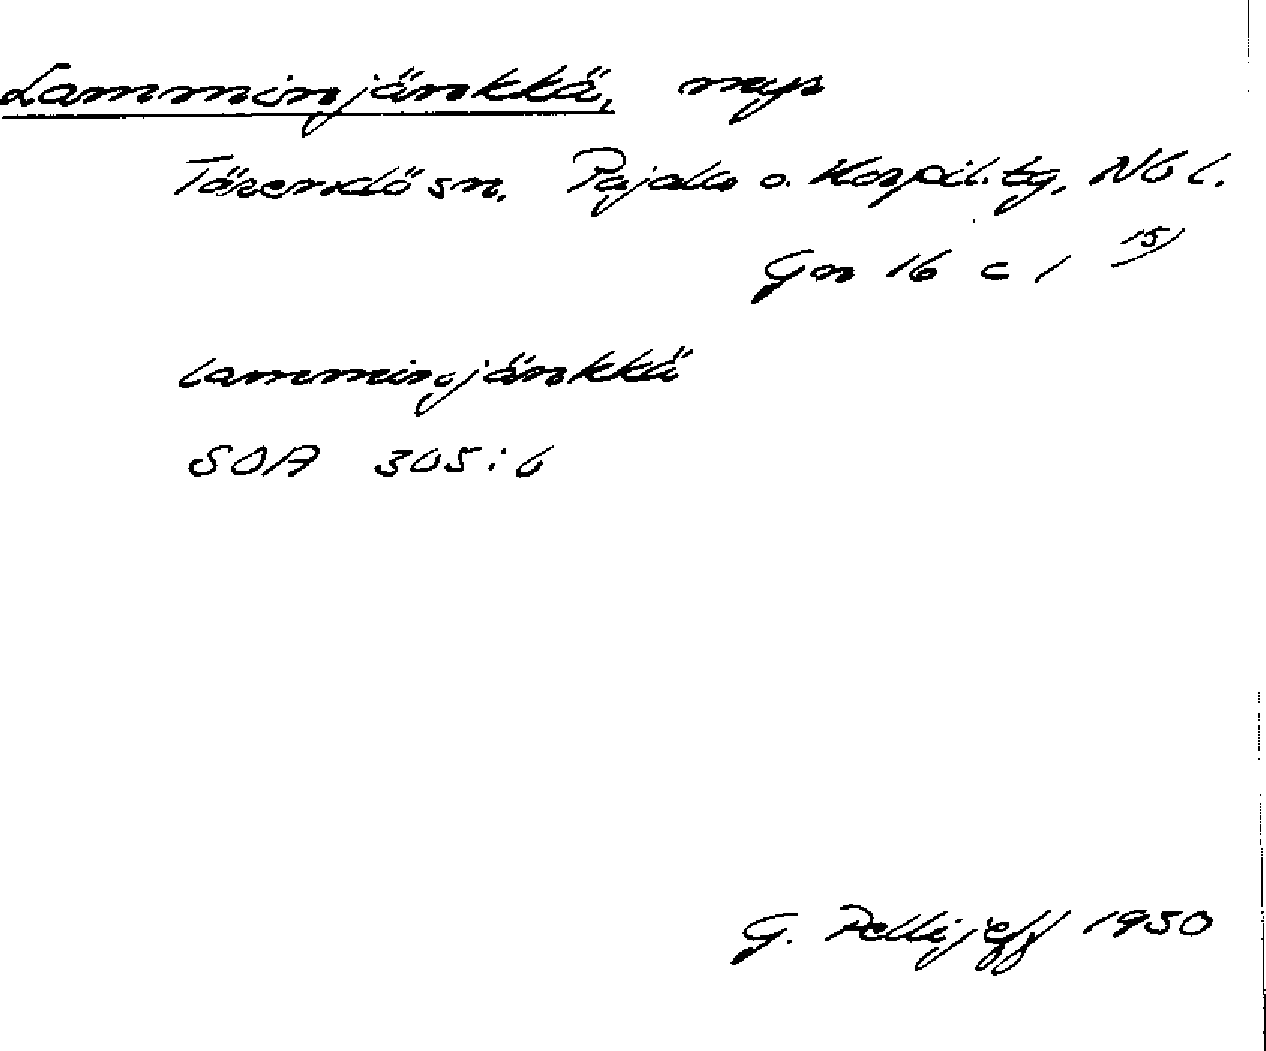 Lamminjänkkä, myr
Tärendö sn. Pajala o. Korpil. tg, Nb l.
Gn 16 c 1 15)
lamminjänkkä
SOA 305:6
G. Pellijeff 1950